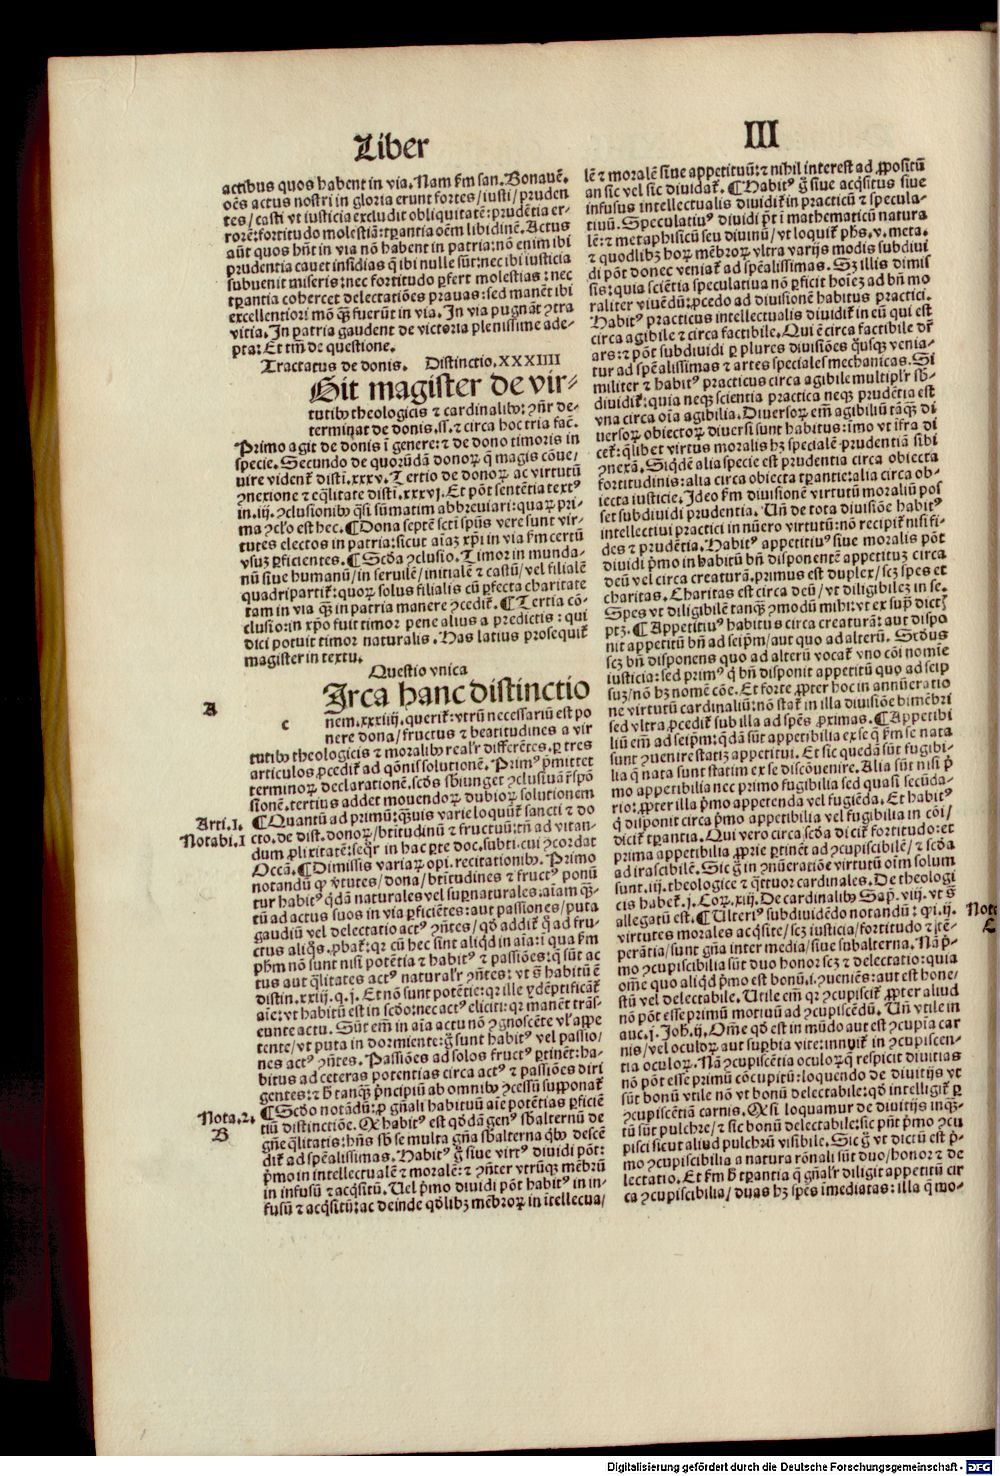 Liber
III
actibus quos habent in via. Nam ẜm san. Bonauē.
oēs actus nostri in gloria erunt fortes/ iusti/ pruden
tes/ casti vt iusticia excludit obliquitatē: prudētia er-
rorē: fortitudo molestiā: tꝑantia oēm libidinē. Actus
aūt quos hn̄t in via nō habent in patria: nō enim ibi
prudentia cauet insidias q̄ ibi nulle sūt: nec ibi iusticia
subuenit miseris: nec fortitudo ꝑfert molestias: nec
tꝑantia cohercet delectatiōes prauas: sed manēt ibi
excellentiori mō q̄ꝫ fuerūt in via. In via pugnāt ꝯtra
vitia. In patria gaudent de victoria plenissime ade-
pta: Et tm̄ de questione.
Tractatus de donis. Distinctio.XXXIIII
Sit magister de vir-
tutibꝰ theologicis ⁊ cardinalibꝰ: ꝯn̄r de-
terminat de donis. ſſ. ⁊ circa hoc tria fac̄.
Primo agit de donis ī genere: ⁊ de dono timoris in
specie. Secundo de quorūdā donoꝝ q̄ magis cōue/
nire vident̄ disti. xxxv. Tertio de donoꝝ ac virtutū
ꝯnexione ⁊ eq̄litate disti. xxxvj. Et pōt sentētia textꝰ
in .iij. ꝯclusionibꝰ q̄si sūmatim abbreuiari: quaꝝ pri-
ma ꝯclo est hec. ¶ Dona septē scti spūs vere sunt vir-
tutes electos in patria: sicut aīaꝫ xp̄i in via ẜm certū
vsuꝫ ꝑficientes. ¶ Scd̄a ꝯclusio. Timor in munda-
nū siue humanū/ in seruilē/ initialē ⁊ castū/ vel filialē
quadripartik̄: quoꝝ solus filialis cū ꝑfecta charitate
tam in via q̄ꝫ in patria manere ꝯcedit̄. ¶ Tertia cō-
clusio: in xp̄o fuit timor pene alius a predictis: qui
dici potuit timor naturalis. Has latius prosequit̄
magister in textu.
Questio vnica
A
c
Irca hanc distinctio
nem. xxxiiij. querit̄: vtrū necessariū est po
nere dona/ fructus ⁊ beatitudines a vir
tutibꝰ theologicis ⁊ moralibꝰ realr̄ differētes. ꝑ tres
articulos ꝓcedit̄ ad q̄onis solutionē. Primꝰ p̄mittet
terminoꝝ declarationē. scd̄s sb̄iunget ꝯclusiuā r̄spō
sionē. tertius addet mouendoꝝ dubioꝝ solutionem
Arti. 1.
Notabi. 1
¶ Quantū ad primū: q̄ꝫuis varie loquūt̄ sancti ⁊ do
cto. de dist. donoꝝ/ btitudinū ⁊ fructuū: tn̄ ad vitan-
dum ꝓlixitatē: seqr̄ in hac ꝑte doc. subti. cui ꝯcordat
Occā. ¶ Dimissis variaꝝ opi. recitationibꝰ. Primo
notandū ꝙ v̄tutes/ dona/ btitudines ⁊ fructꝰ ponū
tur habitꝰ q̄dā naturales vel suꝑnaturales: aīam q̄ꝫ-
tū ad actus suos in via ꝑficiētes: aut passiones/ puta
gaudiū vel delectatio actꝰ ꝯn̄tes/ qd̄ addit̄ q̄ ad fru/
ctus aliq̄s. ꝓbat̄: qr cū hec sint aliqd in aīa: ī qua ẜm
ph̄m nō sunt nisi potētia ⁊ habitꝰ ⁊ passiōes: q̄ sūt ac
tus aut q̄litates actꝰ naturalr̄ ꝯn̄tes: vt s̄ habitū ē
distin. xxiij. q. j. Et nō sunt potētie: qr ille ydēptificāt̄
aīe: vt habitū est in scd̄o: nec actꝰ eliciti: qr manēt trās/
eunte actu. Sūt em̄ in aīa actu nō ꝯgnoscēte vl̄ appe
tente/ vt puta in dormiente: g̊ sunt habitꝰ vel passio/
nes actꝰ ꝯn̄tes. Passiōes ad solos fructꝰ ꝑtinēt: ha-
bitus ad ceteras potentias circa actꝰ ⁊ passiōes diri
gentes: ⁊ h̄ tanq̄ꝫ p̄ncipiū ab omnibꝰ ꝯcessū supponat̄
Nota. 2.
B
¶ Scd̄o notādū: ꝓ gn̄ali habituū aīe potētias ꝑficiē
tiū distinctiōe. Qꝫ habitꝰ est qd̄dā genꝰ sb̄alternū de
gn̄e q̄litatis: hn̄s sb̄ se multa gn̄a sb̄alterna qbꝰ descē
dit̄ ad spēalissimas. Habitꝰ g̊ siue virtꝰ diuidi pōt:
p̄mo in intellectualē ⁊ moralē: ⁊ ꝯn̄ter vtrūqꝫ mēbrū
in infusū ⁊ acq̄sitū. Uel p̄mo diuidi pōt habitꝰ in in-
fusū ⁊ acq̄sitū: ac deinde qd̄libꝫ mēbroꝝ in ītellectua/
lē ⁊ moralē siue appetituū: ⁊ nihil interest ad ꝓpositū
an sic vel sic diuidat̄. ¶ Habitꝰ g̊ siue acq̄situs siue
infusus intellectualis diuidit̄ in practicū ⁊ specula-
tiuū. Speculatiuꝰ diuidi pōt ī mathematicū natura
lē: ⁊ metaphisicū seu diuinū/ vt loquit̄ phs. v. meta.
⁊ quodlibꝫ hoꝝ mēbroꝝ vltra varijs modis subdiui
di pōt donec veniat̄ ad spēalissimas. Sꝫ illis dimis
sis: quia sciētia speculatiua nō ꝑficit hoīeꝫ ad bn̄ mo
raliter viuēdū: ꝓcedo ad diuisionē habitus practici.
Habitꝰ practicus intellectualis diuidit̄ in eū qui est
circa agibile ⁊ circa factibile. Qui ē circa factibile dr̄
ars: ⁊ pōt subdiuidi ꝑ plures diuisiōes q̄usqꝫ venia-
tur ad spēalissimas ⁊ artes speciales mechanicas. Si
militer ⁊ habitꝰ practicus circa agibile multiplr̄ sb̄-
diuidit̄: quia neqꝫ scientia practica neqꝫ prudētia est
vna circa oīa agibilia. Diuersoꝝ em̄ agibiliū tāq̄ꝫ di
uersoꝝ obiectoꝝ diuersi sunt habitus: īmo vt īfra di
cet̄: q̄libet virtus moralis hꝫ specialē prudentiā sibi
ꝯnexā. Siqdē alia specie est prudentia circa obiecta
fortitudinis: alia circa obiecta tꝑantie: alia circa ob-
iecta iusticie. Ideo ẜm diuisionē virtutū moraliū pos
set subdiuidi prudentia. Un̄ de tota diuisiōe habitꝰ
intellectiui practici in nūero virtutū: nō recipit̄ nisi fi-
des ⁊ prudētia. Habitꝰ appetitiuꝰ siue moralis pōt
diuidi p̄mo in habitū bn̄ disponentē appetituꝫ circa
deū vel circa creaturā. primus est duplex/ scꝫ spes et
charitas. Charitas est circa deū/ vt diligibileꝫ in se.
Spes vt diligibilē tanq̄ꝫ ꝯmodū mihi: vt ex supradictꝭ
ptꝫ. ¶ Appetitiuꝰ habitus circa creaturā: aut dispo
nit appetitū bn̄ ad seip̄m/ aut quo ad alterū. Scd̄us
scꝫ bn̄ disponens quo ad alterū vocat̄ vno cōi nomīe
iusticia: sed primꝰ q̄ bn̄ disponit appetitū quo ad seip
suꝫ/ nō hꝫ nomē cōe. Et forte ꝓpter hoc in annūeratio
ne virtutū cardinaliū: nō stat̄ in illa diuisiōe bimēbri
sed vltra ꝓcedit̄ sub illa ad spēs ꝓximas. ¶ Appetibi
liū em̄ ad seip̄m: q̄dā sūt appetibilia ex se q̄ ẜm se nata
sunt ꝯuenire statiꝫ appetitui. Et sic quedā sūt fugibi-
lia q̄ nata sunt statim ex se discōuenire. Alia sūt nisi p̄
mo appetibilia nec primo fugibilia sed quasi secūda-
rio: ꝓpter illa p̄mo appetenda vel fugiēda. Et habitꝰ
q̄ disponit circa p̄mo appetibilia vel fugibilia in cōi/
dicit̄ tꝑantia. Qui vero circa scd̄a dicit̄ fortitudo: et
prima appetibilia ꝓprie ꝑtinēt ad ꝯcupiscibilē/ ⁊ scd̄a
ad irascibilē. Sic g̊ in ꝯnūeratiōe virtutū oīm solum
sunt. iij. theologice ⁊ q̄ttuor cardinales. De theologi
cis habet̄. j. Coꝝ. xiij. De cardinalibꝰ Sap̄. viij. vt s̄
Nota
C
allegatū est. ¶ Ulteriꝰ subdiuidēdo notandū: ꝙ .iij.
virtutes morales acq̄site/ scꝫ iusticia/ fortitudo ⁊ tē-
perātia/ sunt gn̄a inter media/ siue subalterna. Nā p̄-
mo ꝯcupiscibilia sūt duo honor scꝫ ⁊ delectatio: quia
ome quo aliqd p̄mo est bonū. i. ꝯueniēs: aut est hone/
stū vel delectabile. Utile em̄ qr ꝯcupiscit̄ ꝓpter aliud
nō pōt esse primū motiuū ad ꝯcupiscēdū. Un̄ vtile in
auc. j. Joh. ij. Om̄e qd̄ est in mūdo aut est ꝯcupīa car
nis/ vel oculoꝝ aut suꝑbia vite: innuit̄ in ꝯcupiscen-
tia oculoꝝ. Nā ꝯcupiscētia oculoꝝ q̄ respicit diuitias
nō pōt esse primū cōcupitū: loquendo de diuitijs vt
sūt bonū vtile nō vt bonū delectabile: qd̄ intelligit̄ ꝑ
ꝯcupiscētiā carnis. Qꝫ si loquamur de diuitijs inq̄ꝫ-
tū sūt pulchre/ ⁊ sic bonū delectabile: sic pn̄t p̄mo ꝯcu
pisci sicut aliud pulchrū visibile. Sic g̊ vt dictū est p̄-
mo ꝯcupiscibilia a natura rōnali sūt duo/ honor ⁊ de
lectatio. Et ẜm h̄ tꝑantia q̄ gn̄alr̄ diligit appetitū cir
ca ꝯcupiscibilia/ duas hꝫ spēs īmediatas: illa q̄ mo-
Digitalisierung gefördert durch die Deutsche Forschungsgemeinschaft - DFG